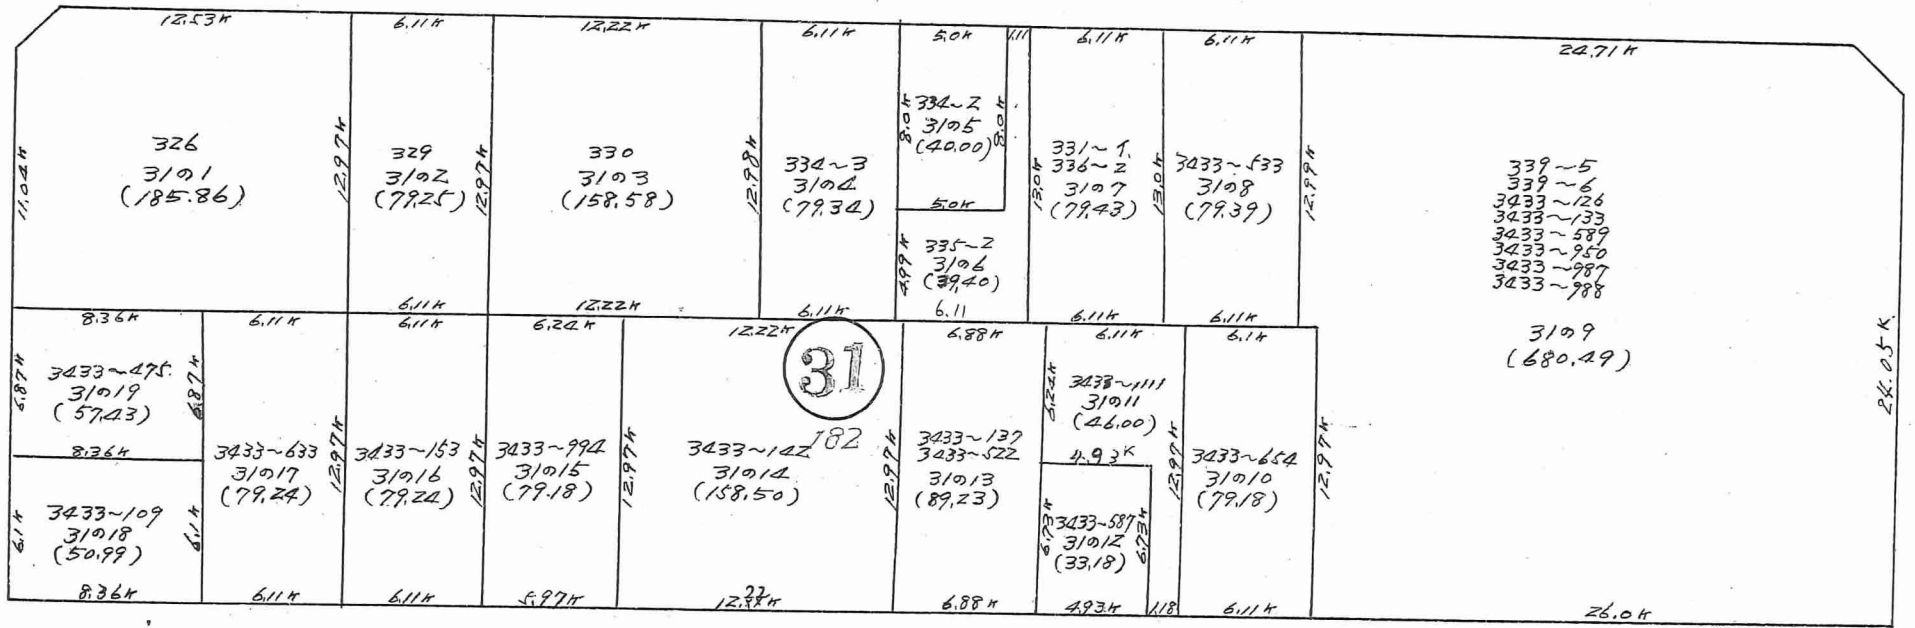 12.53K
6.11K
12.22K
6.11K
5.0K
1.11
6.11K
6.11K
24.71K
11.04K
326
31の1
(185.86)
12.97K
329
31の2
(79.25)
12.97K
330
31の3
(158.58)
12.98K
334~3
31の4
(79.34)
8.0K
334~2
31の5
(40.00)
8.0K
5.0K
4.99K
335~2
31の6
(39.40)
6.11
13.0K
331~1
336~2
31の7
(79.43)
13.0K
3433~533
31の8
(79.39)
12.99K
339~5
339~6
3433~126
3433~133
3433~589
3433~950
3433~987
3433~988
31の9
(680.49)
24.05K
6.11K
12.22K
6.11K
6.11K
6.11K
8.36K
6.11K
6.11K
6.24K
12.22K
6.88K
6.11K
6.1K
6.87K
3433~475
31の19
(57.43)
6.87K
8.36K
6.1K
3433~109
31の18
(50.99)
6.1K
3433~633
31の17
(79.24)
12.97K
3433~153
31の16
(79.24)
12.97K
3433~994
31の15
(79.18)
12.97K
31
182
3433~142
31の14
(158.50)
12.97K
3433~137
3433~522
31の13
(89.23)
6.24K
3433~1111
31の11
(46.00)
4.93K
6.73K
3433~587
31の12
(33.18)
6.73K
12.97K
3433~654
31の10
(79.18)
12.97K
8.36K
6.11K
6.11K
5.97K
6.88K
4.93K
1.18
6.11K
26.0K